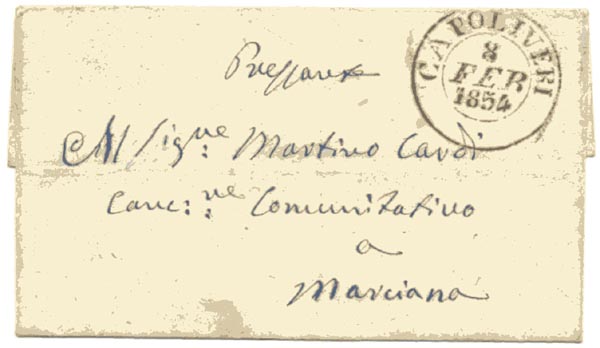 CAPOLIVERI
8
FEB
1854
Pressante
Al Sig:re Martino Cardi
Canc:re Comunitativo
a
Marciana